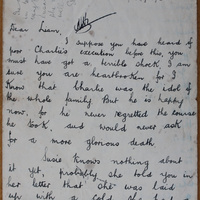 Dear Lucin,
I suppose you have heard of
poor Charlie's execution before this, you
must have got a terrible shock. I am
sure you are heartbroken for I
know that Charlie was the idol of
the whole family. But he is happy
now, for he never regretted the course
he took, and would never ask
for a more glorious death.
Susie knows nothing about
it yet, probably she told you in
her letter that she was laid
up with a cold. She had a